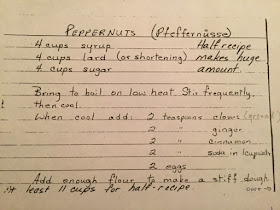 PEPPERNUTS (Pfeffernüsse)
4 cups syrup Half recipe
4 cups lard (or shortening) makes huge
4 cups sugar amount.
Bring to boil on low heat. Stir frequently,
then cool.
When cool add: 2 teaspoons cloves (ground)
2 " ginger
2 " cinnamon
2 " soda in 1 cup
2 eggs
Add enough flour to make a stiff dough
At least 11 cups for half-recipe. over →